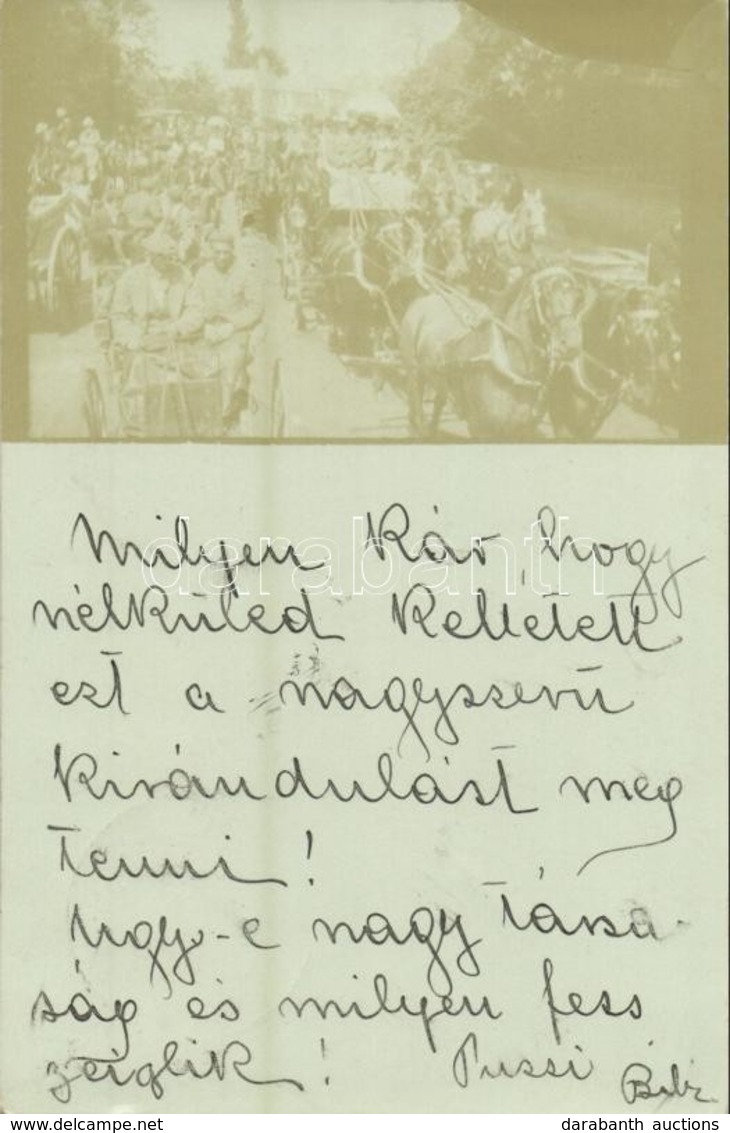 Milyen kár, hogy
nélküled kelletett
ezt a nagyszerű
kirándulást meg
tenni!
Ugy-e nagy társa-
ság és milyen fess
Pussi
darabanth
darabanth auctions